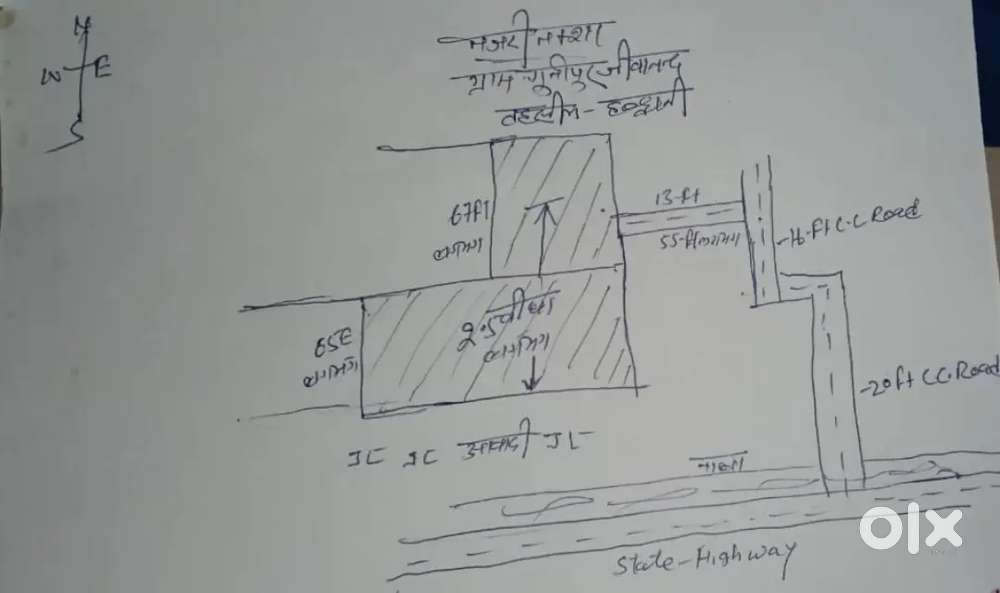 N
W E
S
नजरी नक्शा
ग्राम गुनीपुर जीवानन्द
तहसील - हल्द्वानी
67ft
लगभग
13-ft
55-ft लगभग
16-ft C.C Road
2.5 बीघा
लगभग
65ft
लगभग
20 ft C.C. Road
आबादी
नाला
State-Highway
olx